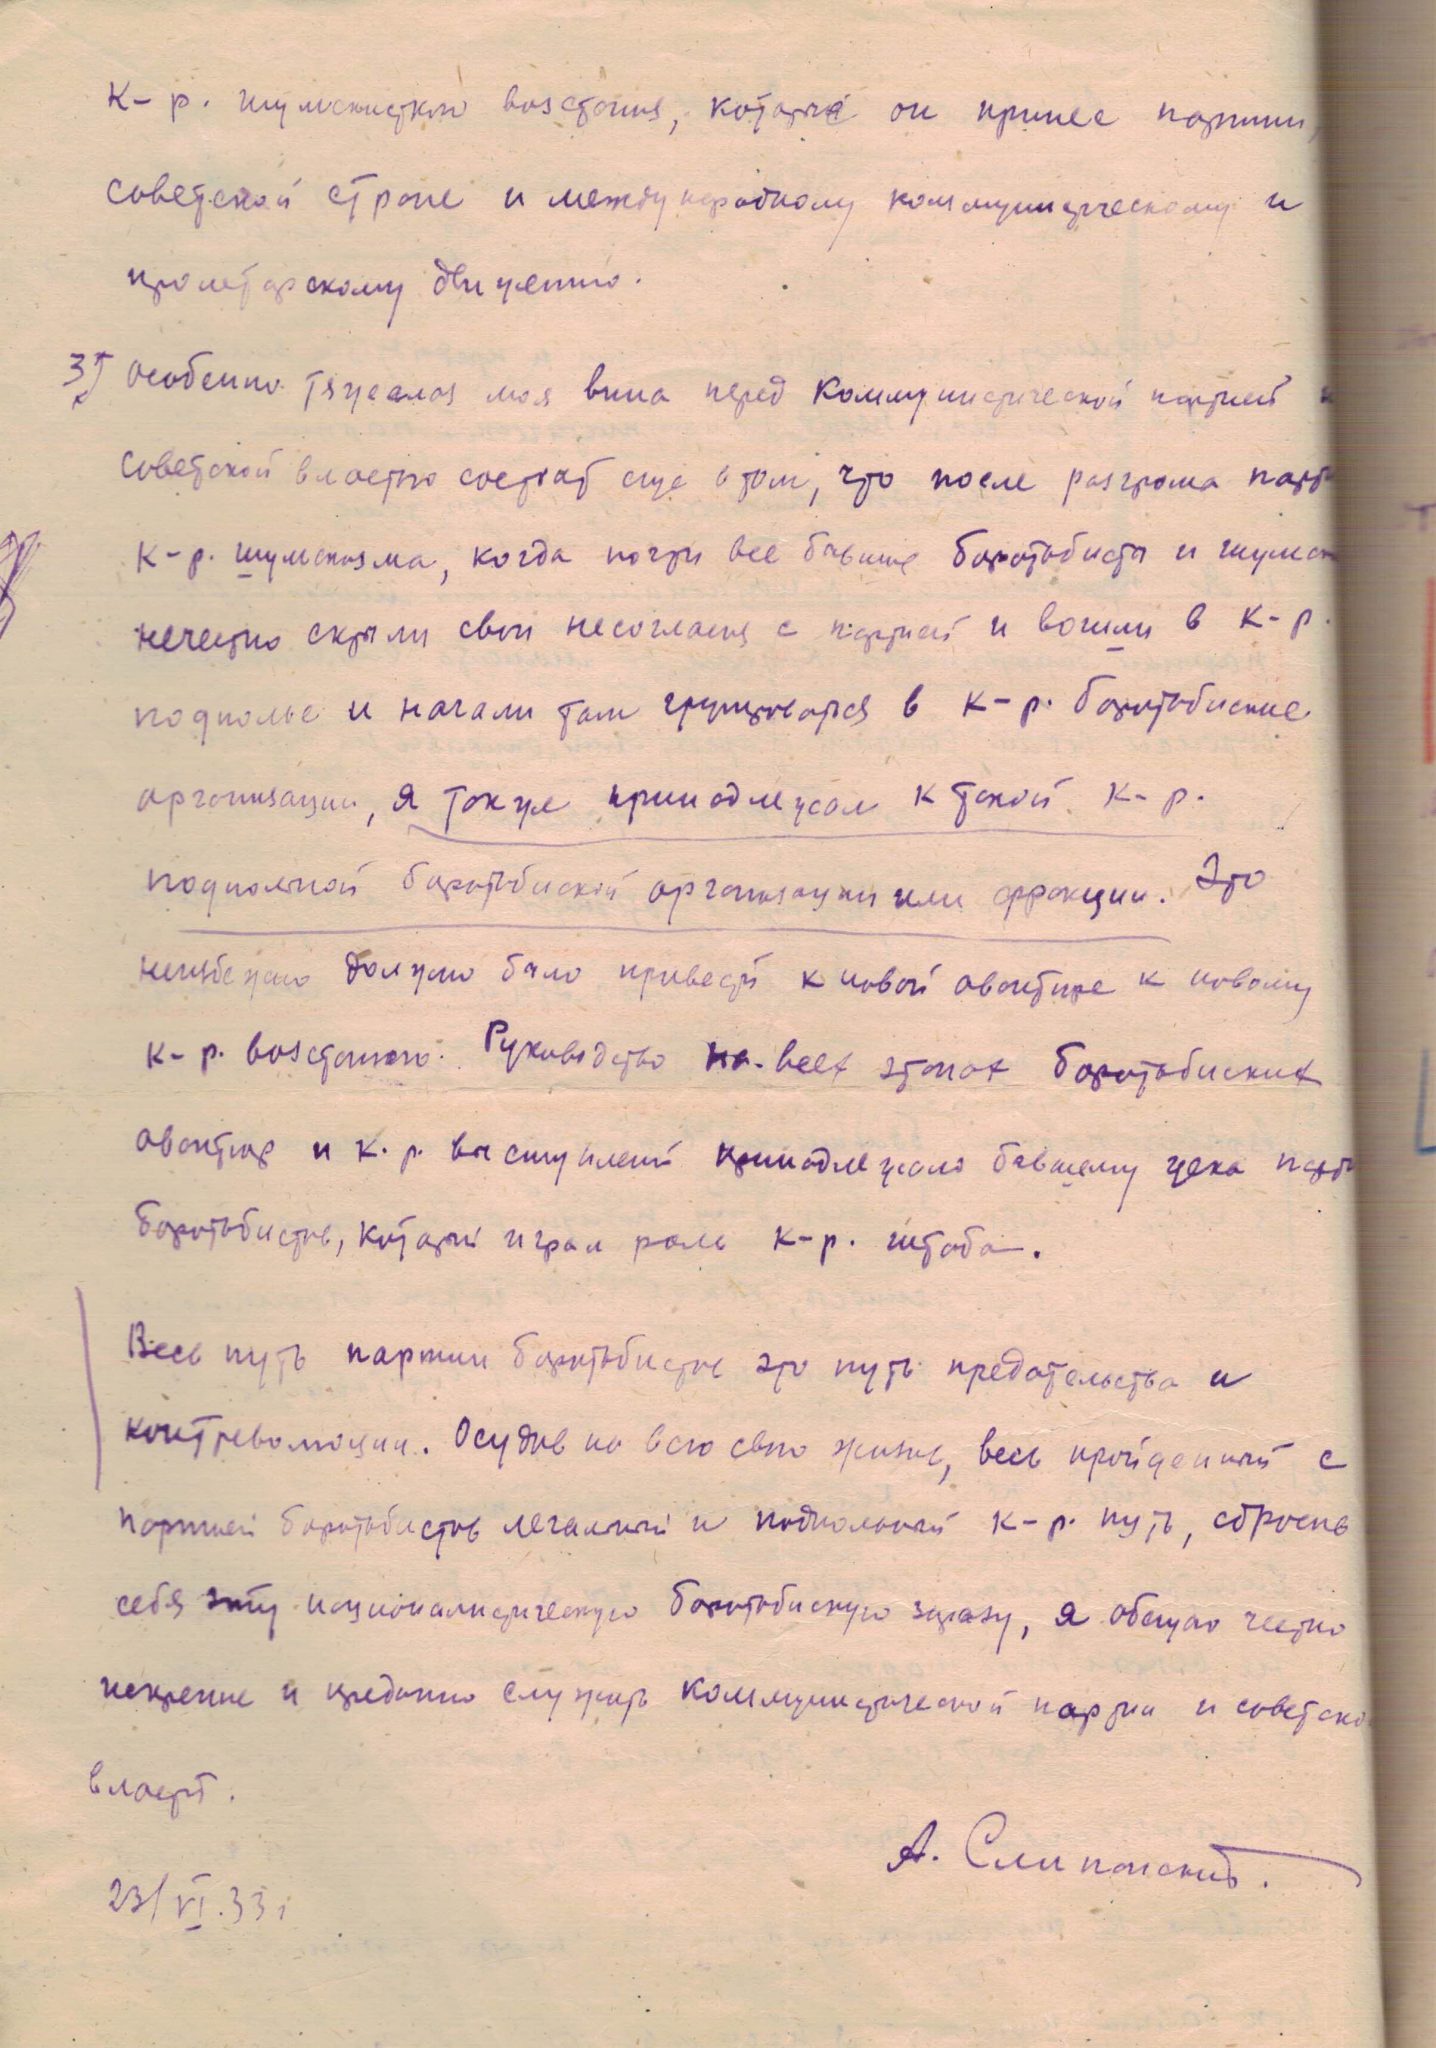 к-р. шумскистского восстания, которые он принес партии,
советской стране и международному коммунистическому и
пролетарскому движению.
3) Особенно тяжелая моя вина перед Коммунистической партией и
советской властью состоит еще в том, что после разгрома парт
к-р. шумскизма, когда почти все бывшие боротьбисты и шумск
нечестно скрыли свои несогласия с партией и вошли в к-р.
подполье и начали там группироваться в к-р. боротьбиские
организации, я также принадлежал к такой к-р.
подпольной боротьбиской организации или фракции. Это
неизбежно должно было привести к новой авантюре к новому
к-р. восстанию. Руководство на всех этапах боротьбиских
авантюр и к.р. выступлений принадлежало бывшему цека парти
боротьбистов, который играл роль к-р. штаба.
Весь путь партии боротьбистов это путь предательства и
контрреволюции. Осудив на всю свою жизнь, весь пройденный с
партией боротьбистов легальный и подпольный к-р. путь, сбросив
себя эту националистическую боротьбискую заразу, я обещаю честно
искренне и преданно служить коммунистической партии и советско
власти.
А. Слипанский.
23/VI.33 г